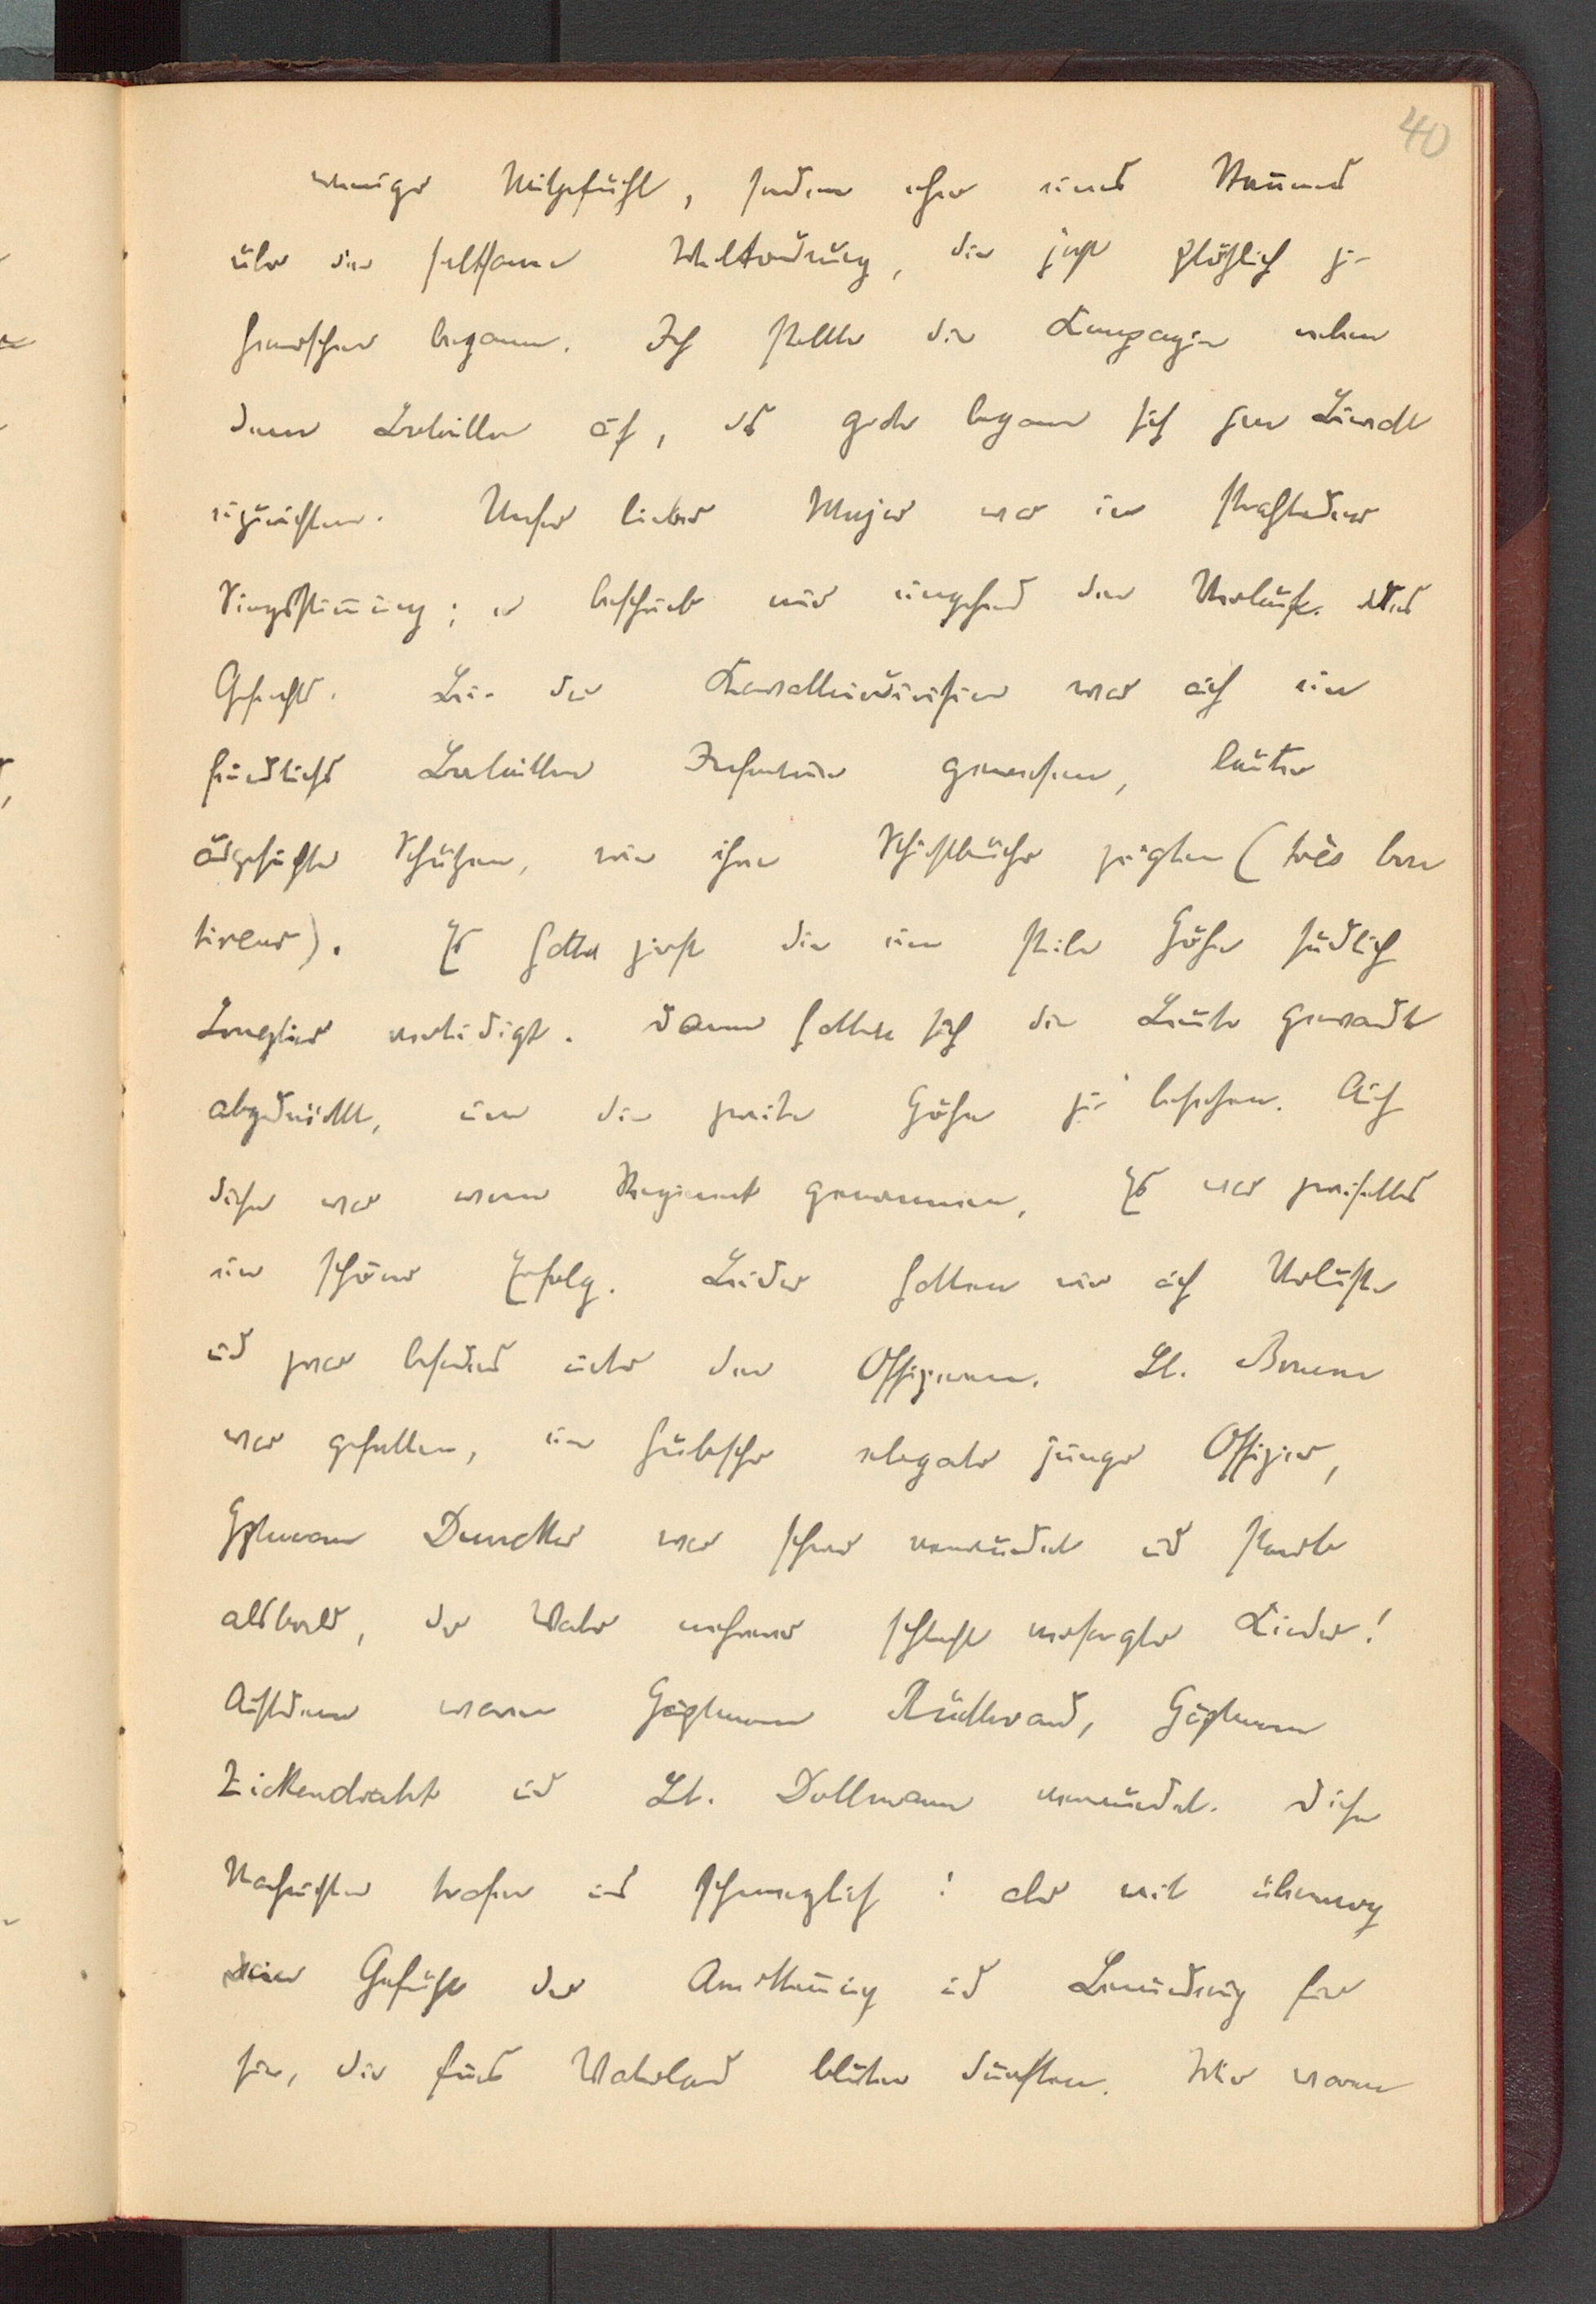 40
weniger Mitgefühl, sondern eher eines Staunens
über die seltsame Weltordnung, die jetzt plötzlich zu
herrschen begann. Ich stellte die Kompagnie neben
dem Bataillon auf, das gerade begann sich zum Biwak
einzurichten. Unser lieber Major war in strahlender
Siegesstimmung; er beschrieb mir eingehend den Verlauf des
Gefechts. Bei der Kavalleriedivision war auch ein
feindliches Bataillon Infanterie gewesen, lauter
ausgesuchte Schützen, wie ihre Schießbücher zeigten (très bon
tireur). Es hatte zuerst die eine steile Höhe südlich
Longlier verteidigt. Dann hatten sich die Leute gewandt
abgedrückt, um die zweite Höhe zu besetzen. Auch
diese war vom Regiment genommen. Es war zweifellos
ein schöner Erfolg. Leider hatten wir auch Verluste
und zwar besonders unter den Offizieren. Lt.
war gefallen, ein hübscher eleganter junger Offizier,
Hauptmann Duncker war schwer verwundet und starb
alsbald, der Vater mehrerer schlecht versorgter Kinder!
Außerdem waren Hauptmann Hauptmann
Zickendraht und Lt. Dollmann verwundet. Diese
Nachrichten trafen uns schmerzlich! aber weit überwog
ein Gefühl der Anerkennung und Bewunderung für
sie, die fürs Vaterland bluten durften. Wir waren